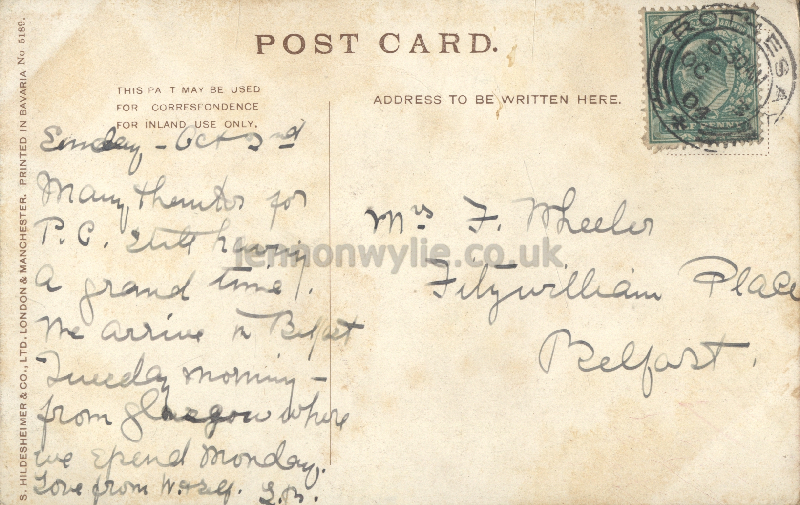 POST CARD.
THIS PART MAY BE USED
FOR CORRESPONDENCE
FOR INLAND USE ONLY,
ADDRESS TO BE WRITTEN HERE.
S. HILDESHEIMER & CO., LTD. LONDON & MANCHESTER. PRINTED IN BAVARIA No 5189.
ROTHESAY
630AM
OC
04
PENNY
Sunday - Oct 2nd
Many thanks for
P.C. Still having
a grand time.
We arrive in Belfast
Tuesday morning -
from Glasgow where
we spend Monday.
Love from
Mrs F. Wheeler
Fitzwilliam Place
Belfast.
lennonwylie.co.uk